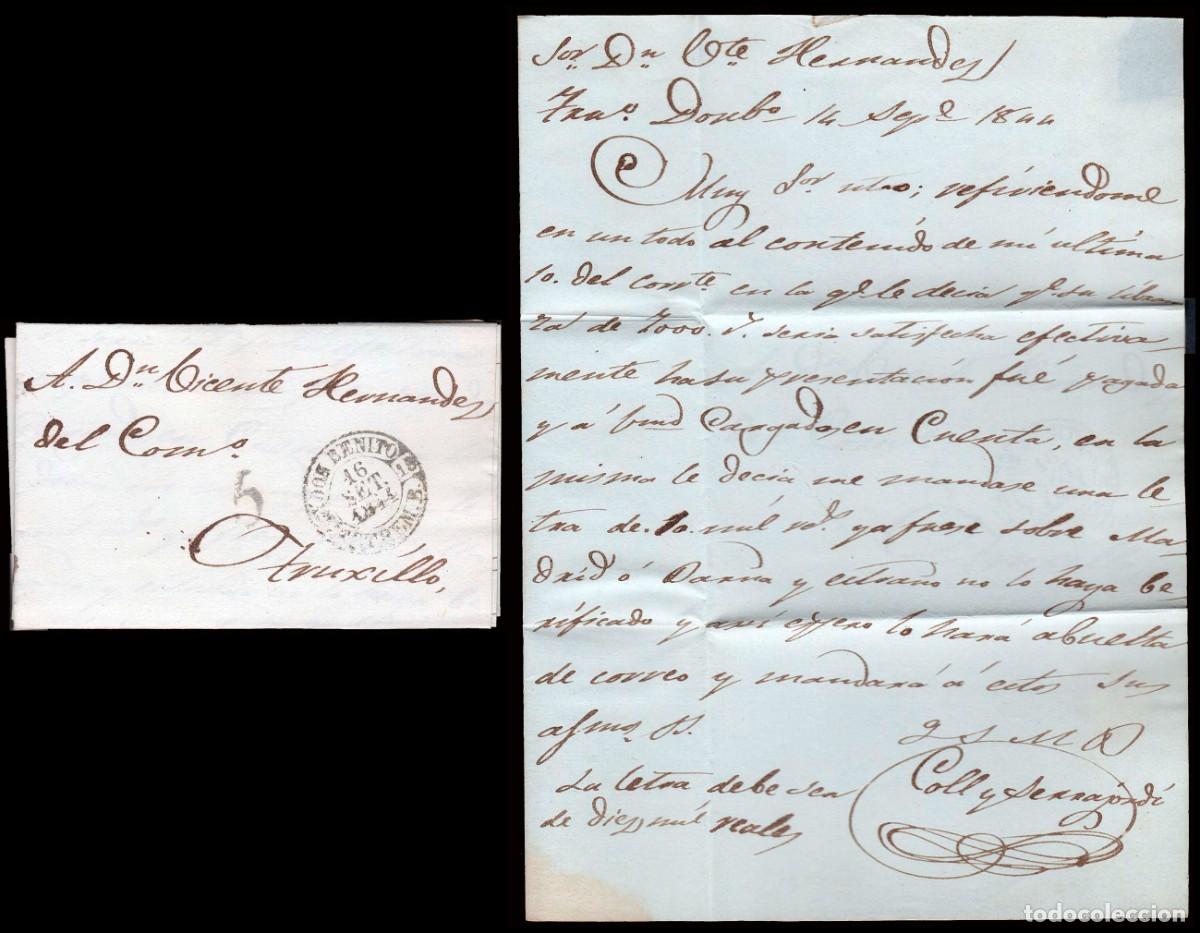 A. Dn Vicente Hernandez
del Como.
5
DON BENITO
16
SET.
1844
ESTREM. B.
Truxillo,
Sor. Dn Vte Hernandez
Truo. Donbo 14 Sepe 1844
Muy Sor. ntro; refiriendome
en un todo al contenido de mi ultima
10. del corrte. en la qe. le decia qe. su libran
za de 7000. r. seria satisfecha efectiva-
mente ha su presentación fué pagada
y á Vmd Cargados en Cuenta, en la
misma le decia me mandase una le
tra de 10. mil rs. ya fuese sobre Ma-
drid ó Barna y estraño no lo haya be-
rificado y asi espero lo hará abuelta
de correo y mandará á estos Sus
afmos. S.
Q S M B
Coll y Serrajordi
La letra debe sea
de diez mil reales
todocoleccion